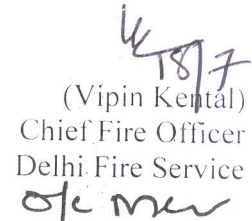 18/7
(Vipin Kental)
Chief Fire Officer
Delhi Fire Service